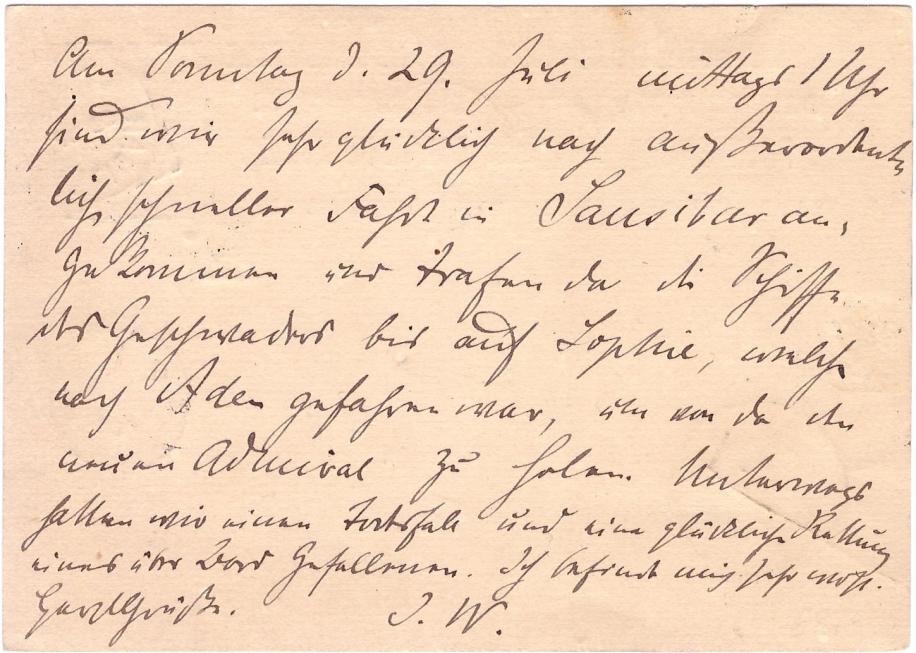 Am Sonntag d. 29. Juli mittags 1 Uhr
sind wir sehr glücklich nach außerordent-
lich schneller Fahrt in Sansibar an-
gekommen und trafen da die Schiffe
des Geschwaders bis auf Sophie, welche
nach Aden gefahren war, um von da den
neuen Admiral zu holen. Unterwegs
hatten wir einen Todesfall und eine glückliche Rettung
eines über Bord Gefallenen. Ich befinde mich sehr wohl.
Herzl Grüße. J. W.